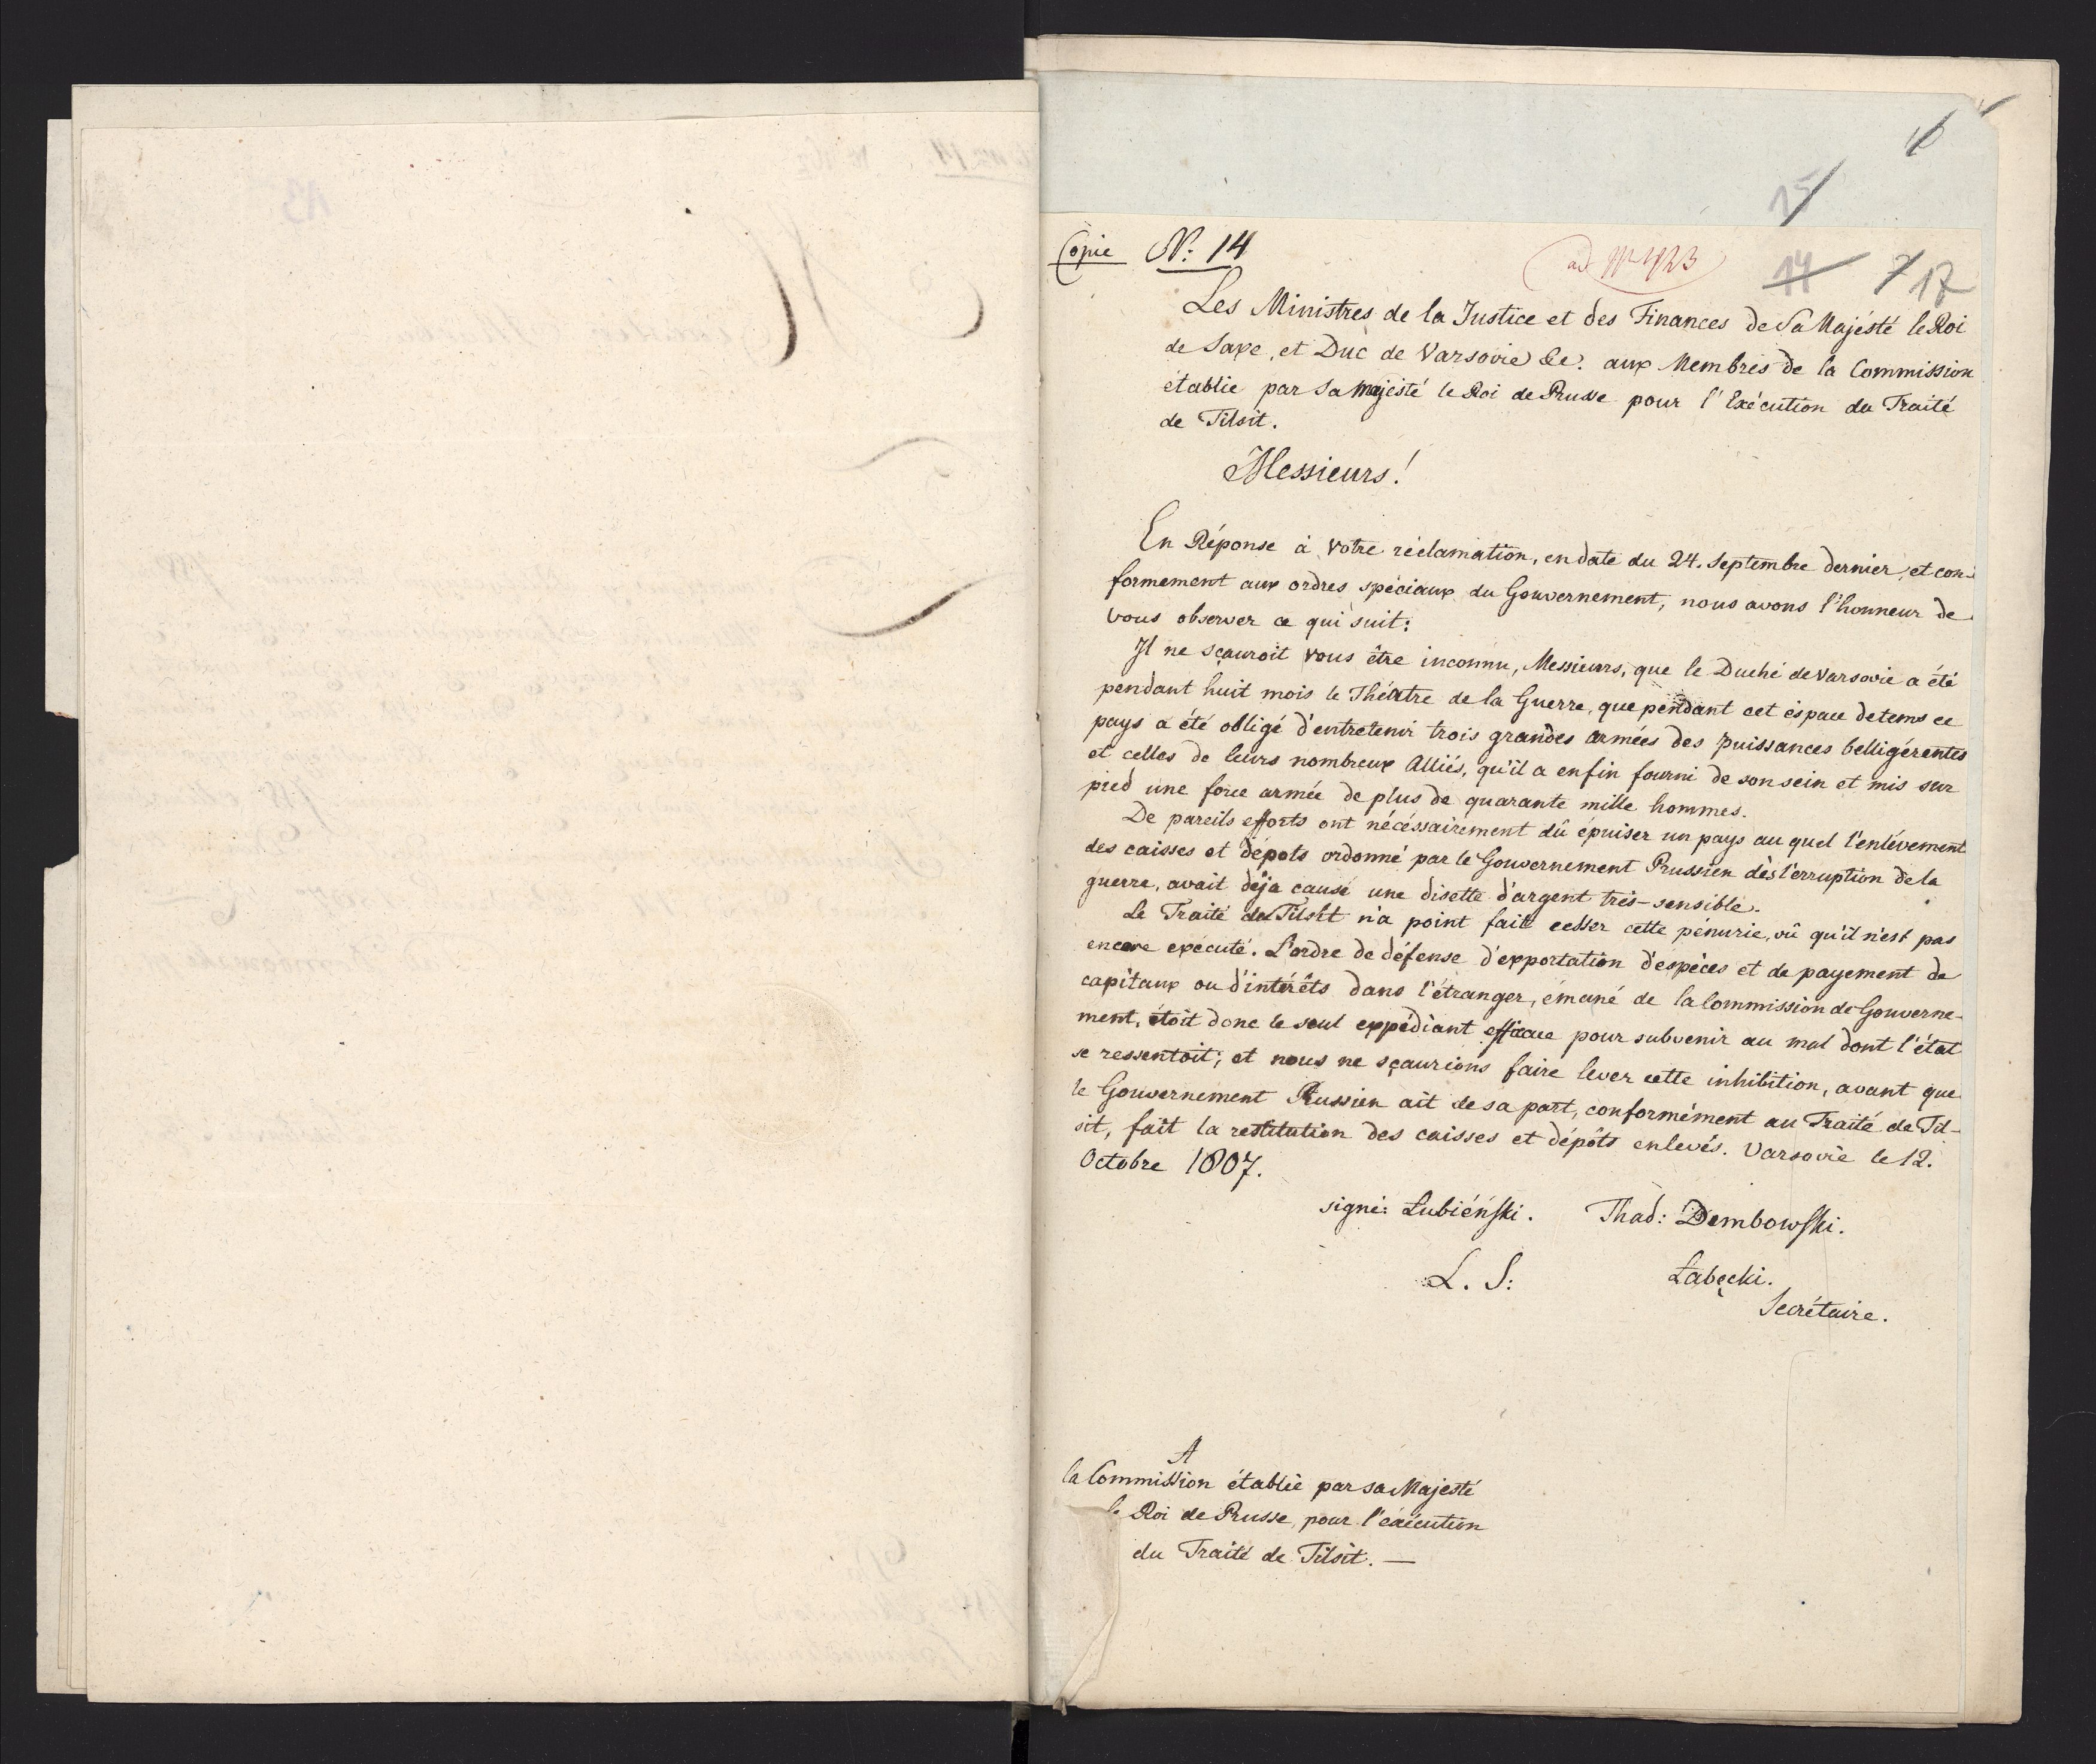 16
15
Copie N: 14
ad N 423
14 7 17
Les Ministres de la Justice et des Finances de Sa Majésté le Roi
de Saxe, et Duc de Varsovie &c: aux Membres de la Commission
établie par Sa Majesté le Roi de Prusse pour l'Exécution du Traité
de Tilsit.
Messieurs!
En Réponse à Votre réclamation, en date du 24. Septembre dernier, et con-
formement aux ordres spéciaux du Gouvernement, nous avons l'honneur de
vous observer ce qui suit:
Il ne sçauroit Vous être inconnu, Messieurs, que le Duché de Varsovie a été
pendant huit mois le Théatre de la Guerre, que pendant cet éspace de tems ce
pays a été obligé d'entretenir trois grandes armées des puissances belligérentes
et celles de leurs nombreux Alliés, qu'il a enfin fourni de son sein et mis sur
pied une force armée de plus de quarante mille hommes.
De pareils efforts ont nécéssairement dû épuiser un pays au quel l'enlévement
des caisses et dépots ordonné par le Gouvernement Prussien dès l'erruption de la
guerre, avait déja causé une disette d'argent très-sensible.
Le Traité de Tilsit n'a point fait cesser cette pénurie, vû qu'il n'est pas
encore exécuté. L'ordre de défense d'exportation d'espèces et de payement de
capitaux ou d'intérêts dans l'étranger, émané de la Commission de Gouverne-
ment, étoit donc le seul expédiant efficace pour subvenir au mal dont l'état
se ressentoit; et nous ne sçaurions faire lever cette inhibition, avant que
le Gouvernement Prussien ait de sa part, conformément au Traité de Til-
sit, fait la restitution des caisses et dépôts enlevés. Varsovie le 12.
Octobre 1807.
signé: Łubiéński. Thad: Dembowski.
L. S: Łabęcki.
Secrétaire.
A
la Commission établie par sa Majesté
le Roi de Prusse, pour l'exécution
du Traité de Tilsit. —